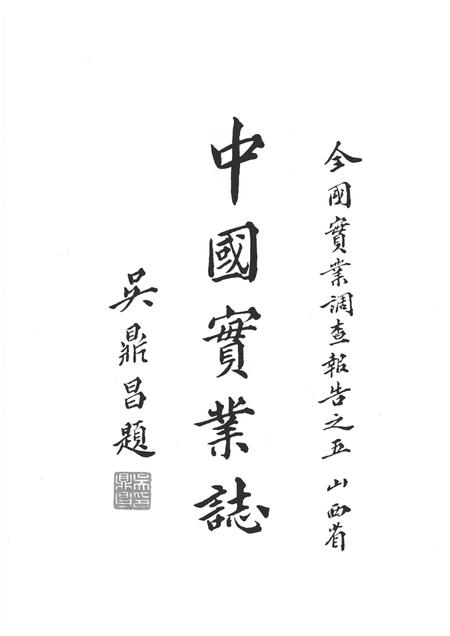 全國實業調查報告之五 山西省
中國實業誌
吳鼎昌題
吳鼎昌印